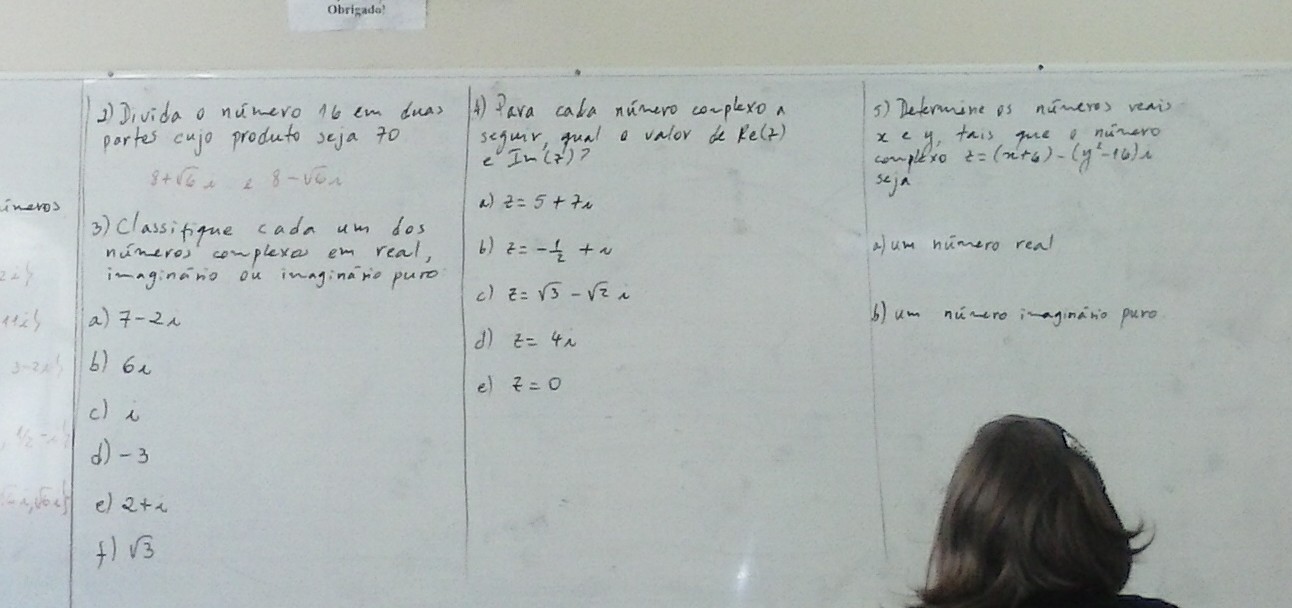 Obrigado!
úmeros
2i}
11i}
3-2i}
, 1/2 - i}
2) Divida o número 16 em duas
partes cujo produto seja 70
8+√6 i e 8-√6 i
3) Classifique cada um dos
números complexos em real,
imaginário ou imaginário puro
a) 7-2i
b) 6i
c) i
d) -3
e) 2+i
f) √3
4) Para cada número complexo a
seguir, qual o valor de Re(z)
e Im(z)?
a) z = 5 + 7i
b) z = -1/2 + i
c) z = √3 - √2 i
d) z = 4i
e) z = 0
5) Determine os números reais
x e y, tais que o número
complexo z = (x+6) - (y²-16)i
seja
a) um número real
b) um número imaginário puro